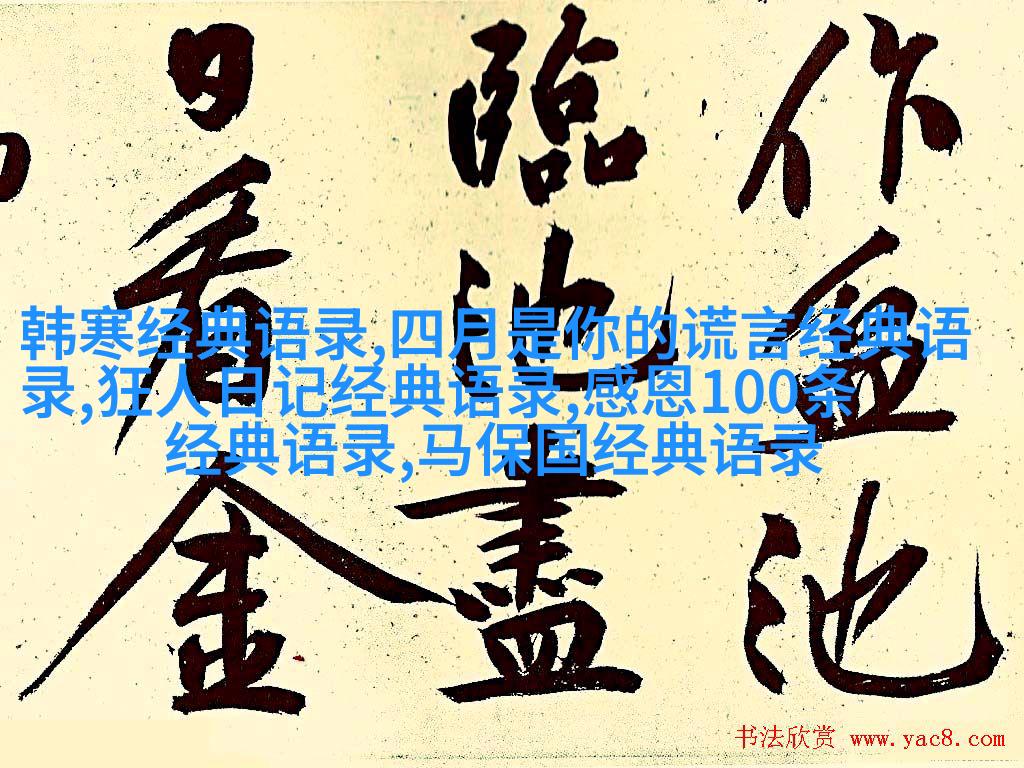 作盆池
臨池盡
日看金
韩寒经典语录,四月是你的谎言经典语
录,狂人日记经典语录,感恩100条
经典语录,马保国经典语录
书法欣赏 www.yac8.com